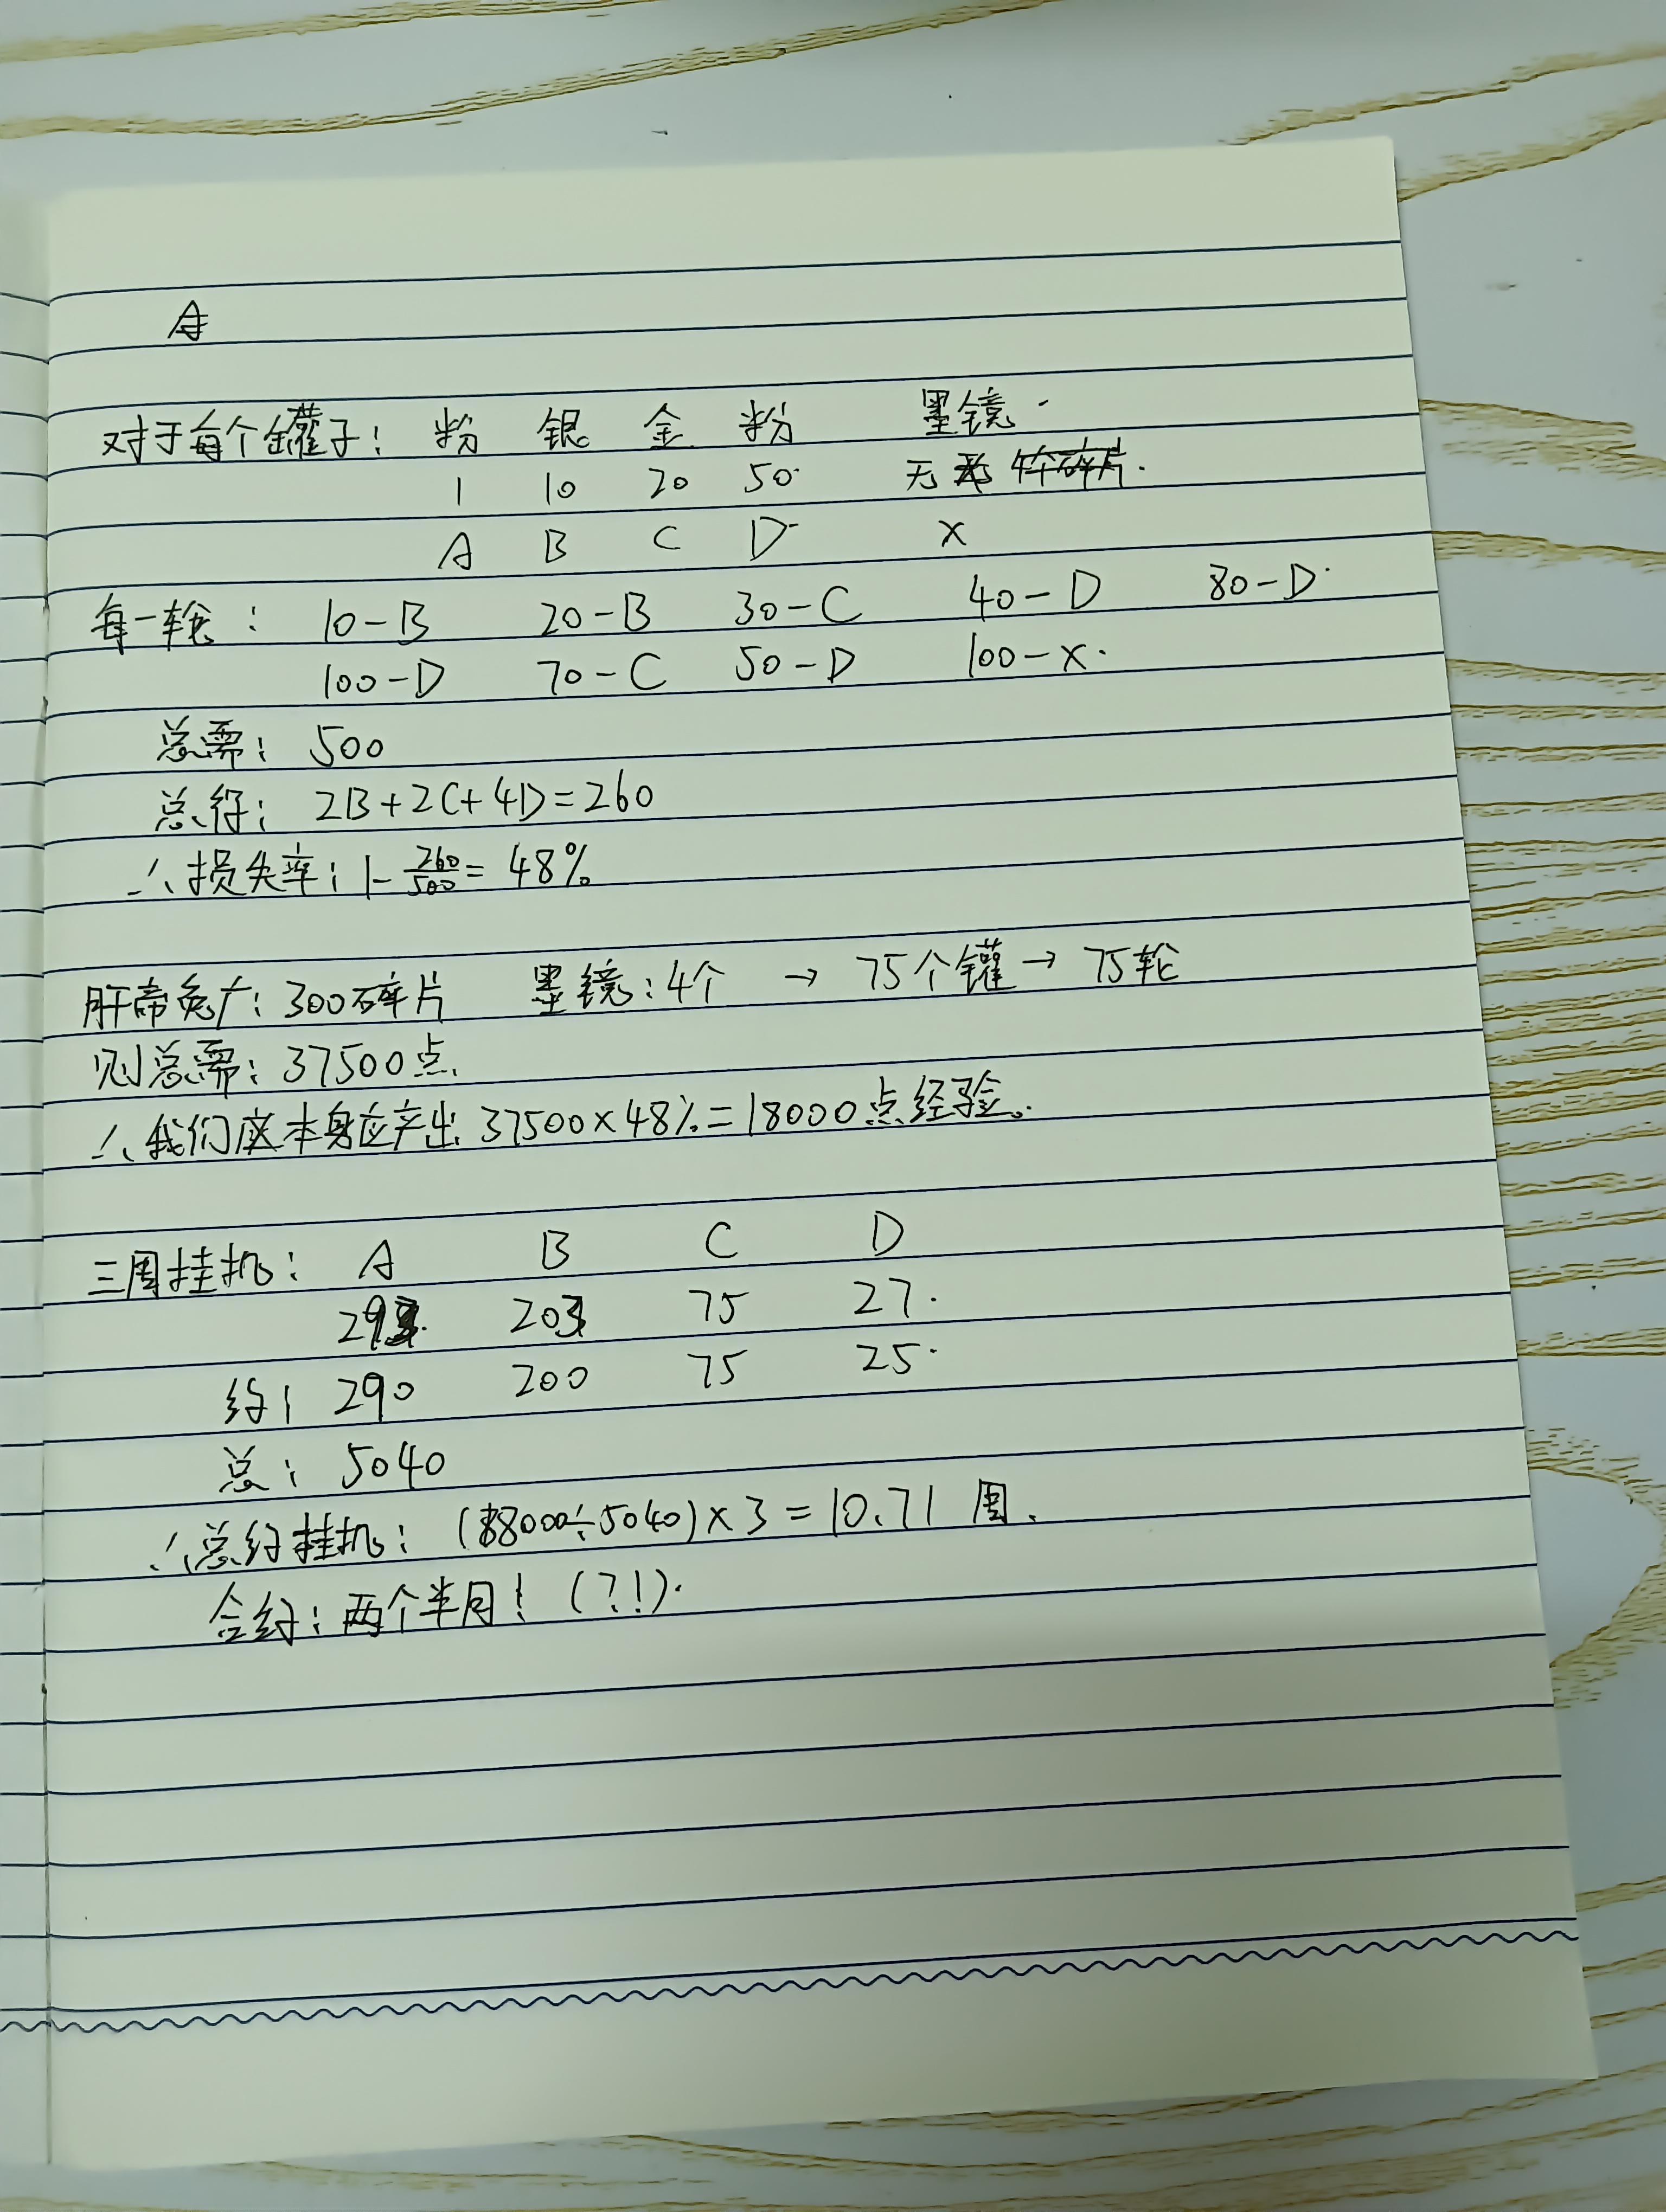 对于每个罐子: 粉 银 金 粉 墨镜.
1 10 20 50. 无
A B C D X
每一轮: 10-B 20-B 30-C 40-D 80-D.
100-D 70-C 50-D 100-X.
总需: 500
总得: 2B+2C+4D=260
∴损失率: 1-260/500=48%
肝帝兔厂: 300碎片 墨镜:4个 → 75个罐→75轮
则总需: 37500点
∴我们应本身应产出 37500×48%=18000点经验。
三周挂机: A B C D
29 203 75 27.
约: 290 200 75 25.
总: 5040
∴总约挂机: (18000÷5040)×3=10.71 周.
合约: 两个半月! (?!).